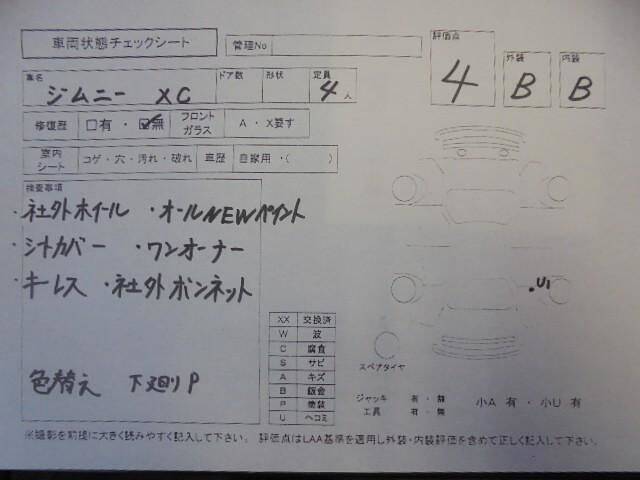 車両状態チェックシート
管理No
評価点
4
外装
B
内装
B
車名
ジムニー XC
ドア数
形状
定員
4人
修復歴 □有・☑無
フロントガラス
A・X要す
室内シート
コゲ・穴・汚れ・破れ
車歴
自家用・( )
検査事項
・社外ホイール ・オールNEWペイント
・シートカバー ・ワンオーナー
・キーレス ・社外ボンネット
色替え 下廻りP
XX 交換済
W 波
C 腐食
S サビ
A キズ
B 鈑金
P 塗装
U ヘコミ
・U1
スペアタイヤ
ジャッキ 有・無
工具 有・無
小A 有・小U 有
※撮影を前提に大きく読みやすく記入して下さい。 評価点はLAA基準を適用し外装・内装評価を含めて正しく記入して下さい。